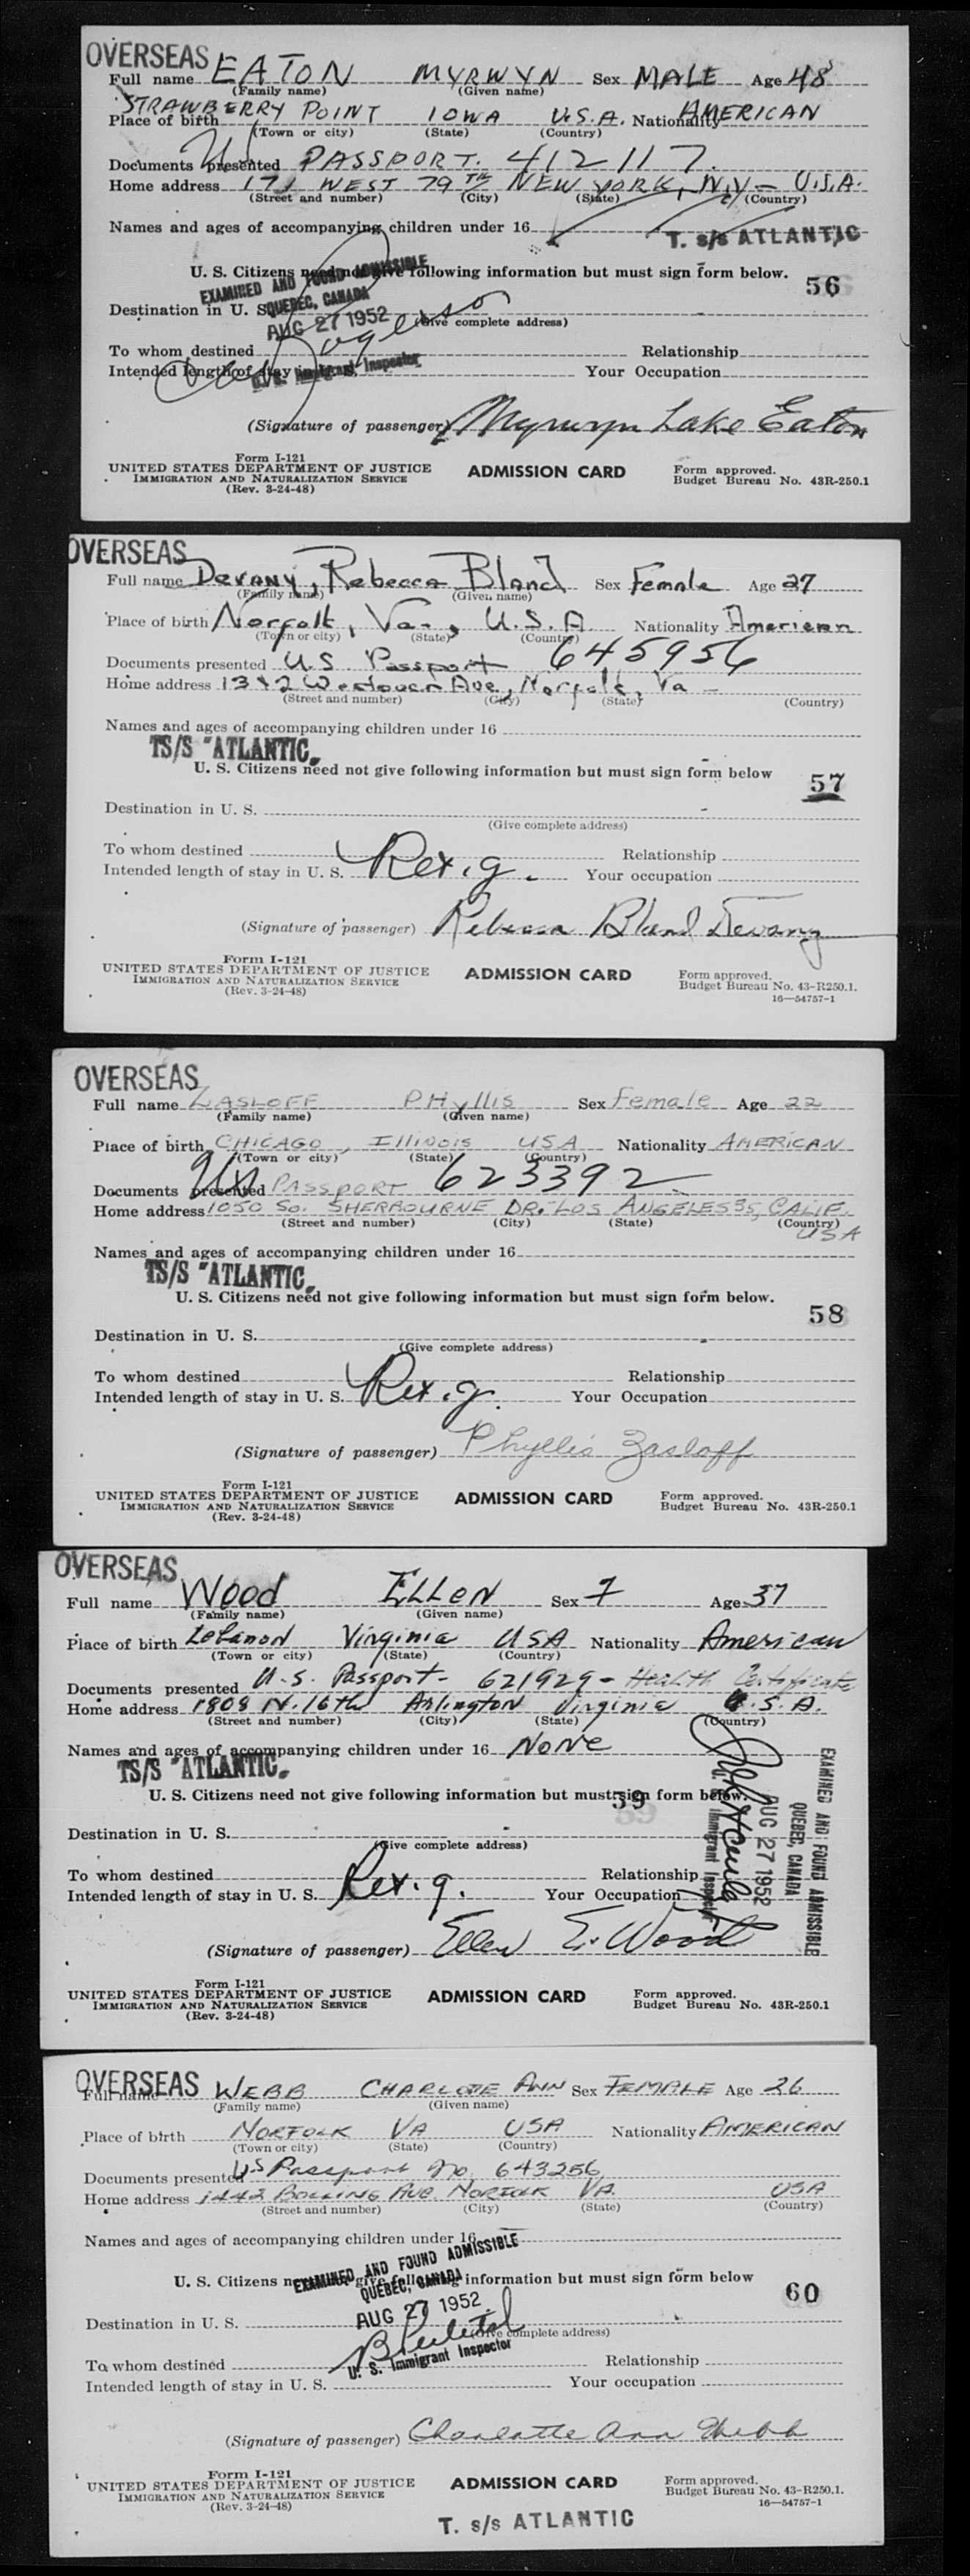 OVERSEAS
Full name EATON MYRWYN Sex MALE Age 48
(Family name) (Given name)
Place of birth STRAWBERRY POINT IOWA U.S.A. Nationality AMERICAN
(Town or city) (State) (Country)
Documents presented US PASSPORT. 412117.
Home address 171 WEST 79TH NEW YORK, N.Y - U.S.A.
(Street and number) (City) (State) (Country)
Names and ages of accompanying children under 16
T. s/s ATLANTIC
U. S. Citizens need not give following information but must sign form below.
EXAMINED AND FOUND ADMISSIBLE
56
QUEBEC, CANADA
Destination in U. S.
AUG 27 1952
(Give complete address)
To whom destined Relationship
Intended length of stay in U. S. Your Occupation
U. S. Immigrant Inspector
(Signature of passenger) Myrwyn Lake Eaton
Form I-121
UNITED STATES DEPARTMENT OF JUSTICE ADMISSION CARD Form approved.
IMMIGRATION AND NATURALIZATION SERVICE Budget Bureau No. 43R-250.1
(Rev. 3-24-48)
OVERSEAS
Full name Devany, Rebecca Bland Sex Female Age 27
(Family name) (Given name)
Place of birth Norfolk, Va., U.S.A Nationality American
(Town or city) (State) (Country)
Documents presented U.S. Passport 645956
Home address 1342 Westover Ave., Norfolk, Va -
(Street and number) (City) (State) (Country)
Names and ages of accompanying children under 16
TS/S "ATLANTIC"
U. S. Citizens need not give following information but must sign form below
57
Destination in U. S.
(Give complete address)
To whom destined Relationship
Intended length of stay in U. S. Rex. g. Your occupation
(Signature of passenger) Rebecca Bland Devany
Form I-121
UNITED STATES DEPARTMENT OF JUSTICE ADMISSION CARD Form approved.
IMMIGRATION AND NATURALIZATION SERVICE Budget Bureau No. 43-R250.1.
(Rev. 3-24-48) 16—54757-1
OVERSEAS
Full name ZASLOFF PHyllis Sex Female Age 22
(Family name) (Given name)
Place of birth CHICAGO, ILLINOIS USA Nationality AMERICAN
(Town or city) (State) (Country)
Documents presented US PASSPORT 623392
Home address 1050 So. SHERBOURNE DR. LOS ANGELES 35, CALIF.
(Street and number) (City) (State) (Country)
USA
Names and ages of accompanying children under 16
TS/S "ATLANTIC"
U. S. Citizens need not give following information but must sign form below.
58
Destination in U. S.
(Give complete address)
To whom destined Relationship
Intended length of stay in U. S. Rex. g. Your Occupation
(Signature of passenger) Phyllis Zasloff
Form I-121
UNITED STATES DEPARTMENT OF JUSTICE ADMISSION CARD Form approved.
IMMIGRATION AND NATURALIZATION SERVICE Budget Bureau No. 43R-250.1
(Rev. 3-24-48)
OVERSEAS
Full name Wood ELLEN Sex F Age 37
(Family name) (Given name)
Place of birth Lebanon Virginia USA Nationality American
(Town or city) (State) (Country)
Documents presented U.S. Passport - 621929 - Health Certificate
Home address 1808 N. 16th Arlington Virginia U.S.A.
(Street and number) (City) (State) (Country)
Names and ages of accompanying children under 16 NONE
TS/S "ATLANTIC"
U. S. Citizens need not give following information but must sign form below.
59
EXAMINED AND FOUND ADMISSIBLE
QUEBEC, CANADA
AUG 27 1952
U. S. Immigrant Inspector
Destination in U. S.
(Give complete address)
To whom destined Relationship
Intended length of stay in U. S. Rex. g. Your Occupation
(Signature of passenger) Ellen E. Wood
Form I-121
UNITED STATES DEPARTMENT OF JUSTICE ADMISSION CARD Form approved.
IMMIGRATION AND NATURALIZATION SERVICE Budget Bureau No. 43R-250.1
(Rev. 3-24-48)
OVERSEAS
Full name WEBB CHARLOTTE ANN Sex FEMALE Age 26
(Family name) (Given name)
Place of birth NORFOLK VA USA Nationality AMERICAN
(Town or city) (State) (Country)
Documents presented US Passport No. 643256
Home address 1442 BOLLING AVE NORFOLK VA. USA
(Street and number) (City) (State) (Country)
Names and ages of accompanying children under 16
EXAMINED AND FOUND ADMISSIBLE
U. S. Citizens need not give following information but must sign form below
QUEBEC, CANADA
60
AUG 27 1952
Destination in U. S.
(Give complete address)
U. S. Immigrant Inspector
To whom destined Relationship
Intended length of stay in U. S. Your occupation
(Signature of passenger) Charlotte Ann Webb
Form I-121
UNITED STATES DEPARTMENT OF JUSTICE ADMISSION CARD Form approved.
IMMIGRATION AND NATURALIZATION SERVICE Budget Bureau No. 43-R250.1.
(Rev. 3-24-48) 16—54757-1
T. s/s ATLANTIC